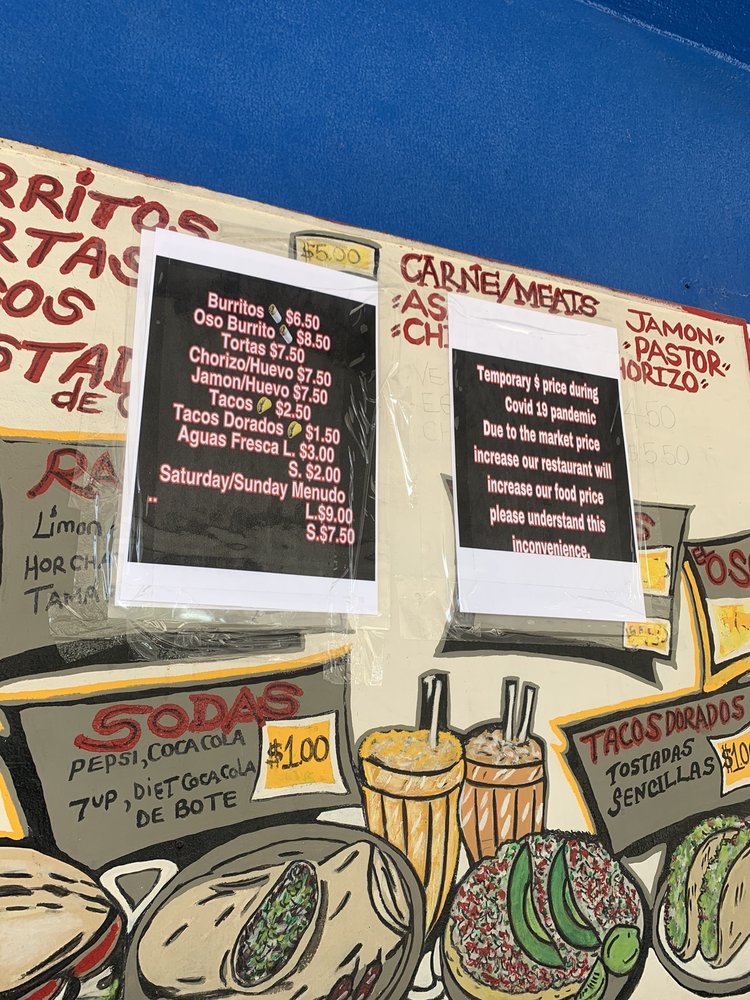 RRITOS
RTAS
COS
STAD
de C
$5.00
Burritos $6.50
Oso Burrito $8.50
Tortas $7.50
Chorizo/Huevo $7.50
Jamon/Huevo $7.50
Tacos $2.50
Tacos Dorados $1.50
Aguas Fresca L. $3.00
S. $2.00
Saturday/Sunday Menudo
..
L.$9.00
S.$7.50
CARNE/MEATS
"AS
"CHI
JAMON"
"PASTOR
HORIZO"
4.50
$5.50
Temporary $ price during
Covid 19 pandemic
Due to the market price
increase our restaurant will
increase our food price
please understand this
inconvenience.
RA
Limon
HORCHA
TAMA
S
OSO
SODAS
PEPSI, COCA COLA
7UP, DIET COCA COLA
DE BOTE
$1.00
TACOS DORADOS
TOSTADAS
SENCILLAS
$1.0